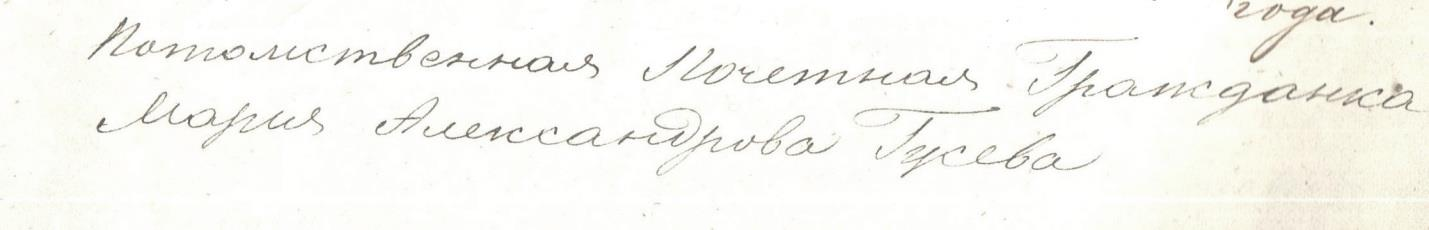 года.
Потомственная Почетная Гражданка
Мария Александрова Гусева